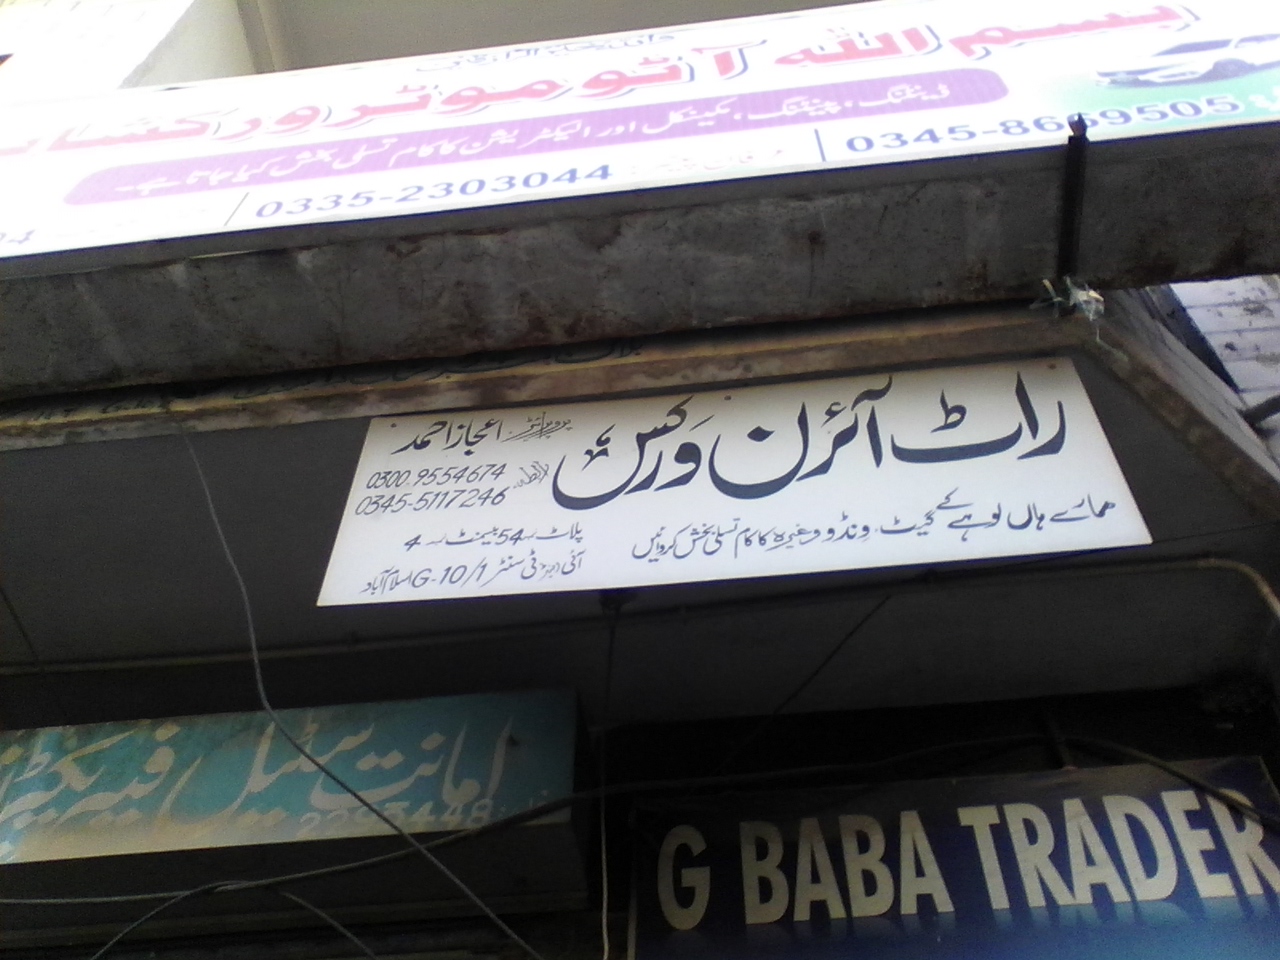 بسم اللہ آٹو موٹر ورکشاپ
ڈینٹنگ، پینٹنگ، مکینکل اور الیکٹریشن کا کام تسلی بخش کیا جاتا ہے۔
0345-8669505
0335-2303044
راٹ آئرن ورکس
پروپرائٹر: اعجاز احمد
رابطہ:
0300.9554674
0345-5117246
ھمارے ہاں لوہے کے گیٹ۔ ونڈو وغیرہ کا کام تسلی بخش کروائیں
پلاٹ نمبر 54 بیسمنٹ نمبر 4
سنٹر G-10/1 اسلام آباد
امانت سٹیل فیبریکیٹر
G BABA TRADER